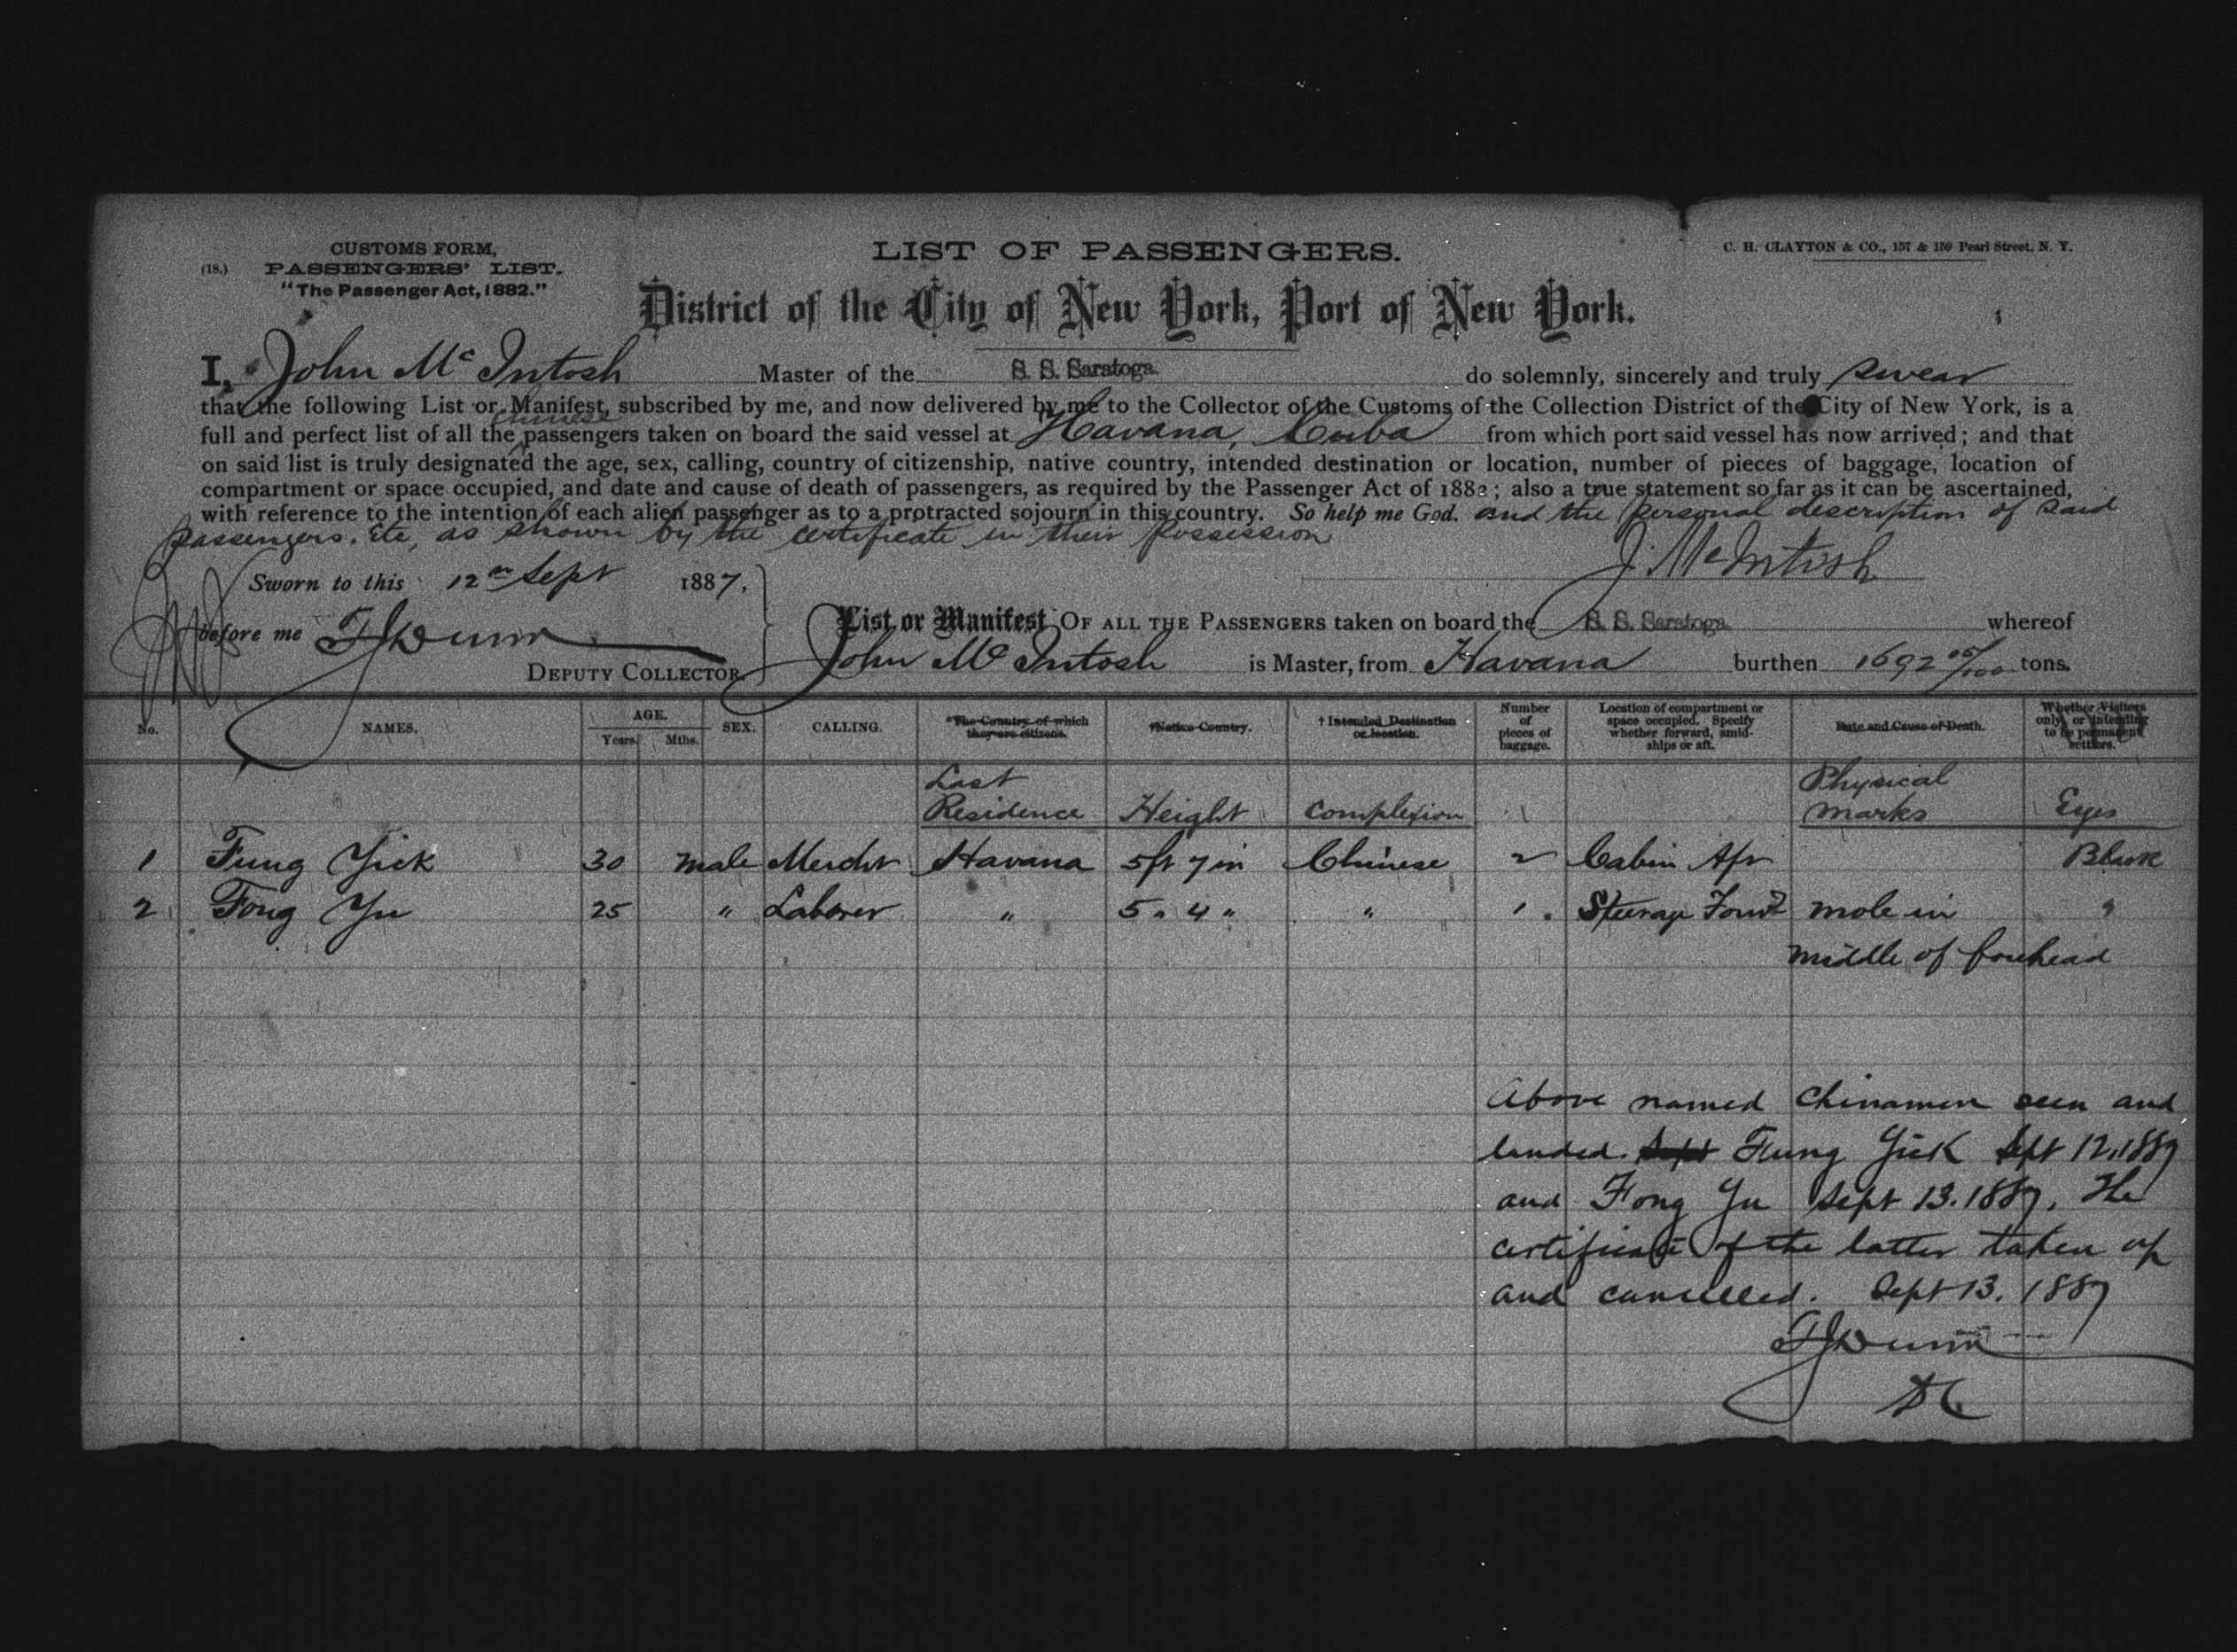 CUSTOMS FORM,
(18.) PASSENGERS' LIST.
"The Passenger Act, 1882."
LIST OF PASSENGERS.
C. H. CLAYTON & CO., 157 & 159 Pearl Street, N. Y.
District of the City of New York, Port of New York.
I, John McIntosh Master of the S. S. Saratoga. do solemnly, sincerely and truly swear
that the following List or Manifest, subscribed by me, and now delivered by me to the Collector of the Customs of the Collection District of the City of New York, is a
Chinese
full and perfect list of all the passengers taken on board the said vessel at Havana, Cuba from which port said vessel has now arrived; and that
on said list is truly designated the age, sex, calling, country of citizenship, native country, intended destination or location, number of pieces of baggage, location of
compartment or space occupied, and date and cause of death of passengers, as required by the Passenger Act of 1882; also a true statement so far as it can be ascertained,
with reference to the intention of each alien passenger as to a protracted sojourn in this country. So help me God. and the personal description of said
passengers. Etc, as shown by the certificate in their possession
J. McIntosh
Sworn to this 12th Sept 1887,
before me F J Dunn
DEPUTY COLLECTOR.
List or Manifest OF ALL THE PASSENGERS taken on board the S. S. Saratoga whereof
John McIntosh is Master, from Havana burthen 1692 05/100 tons.
No. NAMES. AGE. Years. Mths. SEX. CALLING. *The Country of which they are citizens. *Native Country. † Intended Destination or location. Number of pieces of baggage. Location of compartment or space occupied. Specify whether forward, amidships or aft. Date and Cause of Death. Whether Visitors only, or intending to be permanent settlers.
Last Residence Height Complexion Physical marks Eyes
1 Fung Yick 30 male Mercht Havana 5ft 7in Chinese 2 Cabin Aft Black
2 Fong Yu 25 " Laborer " 5 " 4 " " 1 Steerage Forwd mole in "
middle of forehead
Above named Chinamen seen and
landed. Sept Fung Yick Sept 12, 1887
and Fong Yu Sept 13. 1887. The
certificate of the latter taken up
and cancelled. Sept 13. 1887
F J Dunn
DC